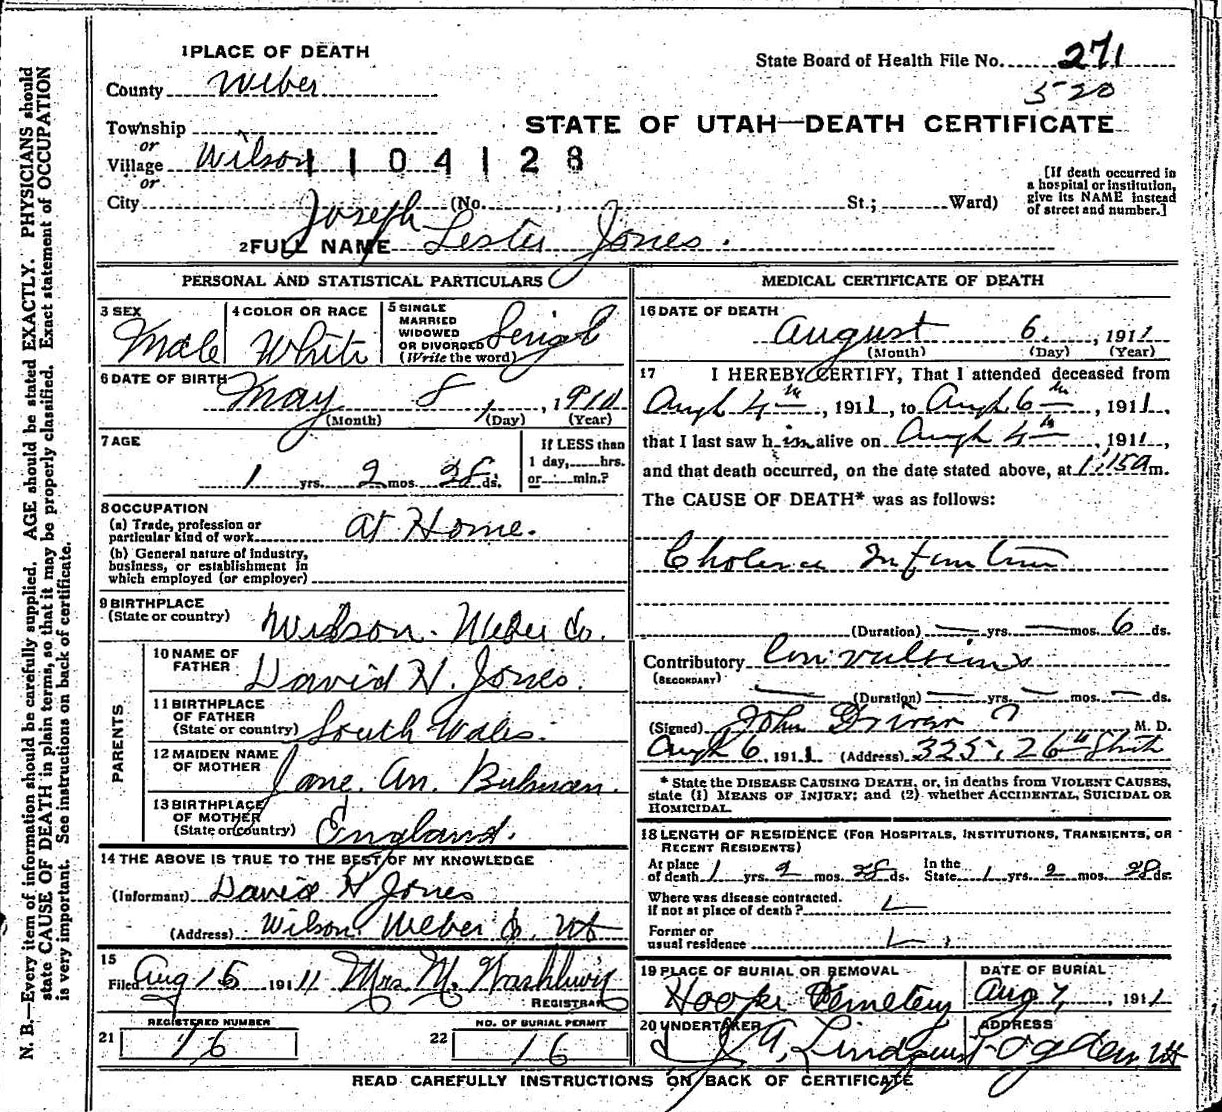 1 PLACE OF DEATH
State Board of Health File No. 271
County Weber
520
Township
STATE OF UTAH—DEATH CERTIFICATE
or
Village Wilson 1104128
or
[If death occurred in a hospital or institution, give its NAME instead of street and number.]
City (No. ; St.; Ward)
2 FULL NAME Joseph Lester Jones.
PERSONAL AND STATISTICAL PARTICULARS
3 SEX
Male
4 COLOR OR RACE
White
5 SINGLE
MARRIED
WIDOWED
OR DIVORCED
(Write the word)
6 DATE OF BIRTH
May 8, 1910
(Month) (Day) (Year)
7 AGE
1 yrs. 2 mos. 28 ds.
If LESS than
1 day, hrs.
or min.?
8 OCCUPATION
(a) Trade, profession or
particular kind of work at Home.
(b) General nature of industry,
business, or establishment in
which employed (or employer)
9 BIRTHPLACE
(State or country) Wilson. Weber Co.
PARENTS
10 NAME OF
FATHER David H. Jones.
11 BIRTHPLACE
OF FATHER
(State or country) South Wales.
12 MAIDEN NAME
OF MOTHER Jane An.
13 BIRTHPLACE
OF MOTHER
(State or country) England.
14 THE ABOVE IS TRUE TO THE BEST OF MY KNOWLEDGE
(Informant) David H Jones
(Address) Wilson Weber Co. Ut
15
Filed Aug 15 1911 Mrs. M.
REGISTRAR
REGISTERED NUMBER
21 16
NO. OF BURIAL PERMIT
22 16
MEDICAL CERTIFICATE OF DEATH
16 DATE OF DEATH
August 6, 1911
(Month) (Day) (Year)
17 I HEREBY CERTIFY, That I attended deceased from
Augh 4th, 1911, to Augh 6th, 1911,
that I last saw him alive on Augh 4th, 1911,
and that death occurred, on the date stated above, at 1:15 a m.
The CAUSE OF DEATH* was as follows:
Cholera Infantum
(Duration) — yrs. — mos. 6 ds.
Contributory Convulsions
(SECONDARY)
(Duration) — yrs. — mos. — ds.
(Signed) John M. D.
Augh 6, 1911 (Address) 325, 26th
* State the DISEASE CAUSING DEATH, or, in deaths from VIOLENT CAUSES,
state (1) MEANS OF INJURY; and (2) whether ACCIDENTAL, SUICIDAL OR
HOMICIDAL.
18 LENGTH OF RESIDENCE (FOR HOSPITALS, INSTITUTIONS, TRANSIENTS, OR
RECENT RESIDENTS)
At place
of death 1 yrs. 2 mos. 28 ds.
In the
State 1 yrs. 2 mos. 28 ds.
Where was disease contracted.
if not at place of death?
Former or
usual residence
19 PLACE OF BURIAL OR REMOVAL
Hooper Cemetery
DATE OF BURIAL
Aug 7, 1911
20 UNDERTAKER
J A, Lindquist
ADDRESS
Ogden, Ut
READ CAREFULLY INSTRUCTIONS ON BACK OF CERTIFICATE
N. B.—Every item of information should be carefully supplied. AGE should be stated EXACTLY. PHYSICIANS should
state CAUSE OF DEATH in plain terms, so that it may be properly classified. Exact statement of OCCUPATION
is very important. See instructions on back of certificate.